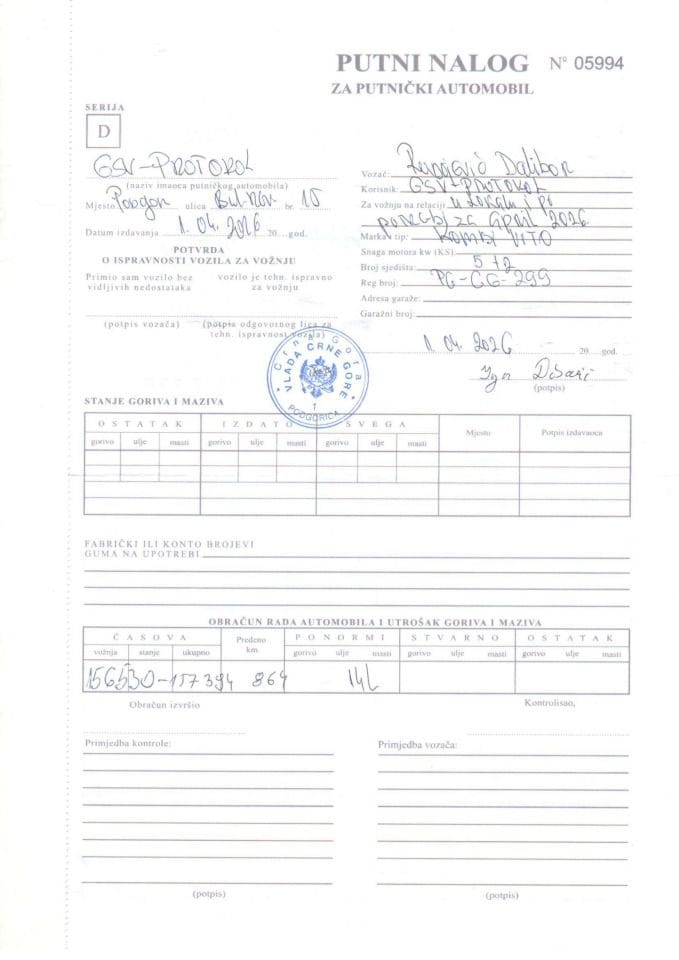 PUTNI NALOG N° 05994
ZA PUTNIČKI AUTOMOBIL
SERIJA
D
GSV-PROTOKOL
(naziv imaoca putničkog automobila)
Mjesto Podgor. ulica Bul. Rev. br. 15
Datum izdavanja 1.04.2026 20 god.
POTVRDA
O ISPRAVNOSTI VOZILA ZA VOŽNJU
Primio sam vozilo bez vidljivih nedostataka
vozilo je tehn. ispravno za vožnju
(potpis vozača) (potpis odgovornog lica za tehn. ispravnost vozila)
Vozač: Dalibor
Korisnik: GSV-PROTOKOL
Za vožnju na relaciji u lokalu i po
potrebi za April 2026
Marka i tip: KOMBI VITO
Snaga motora kw (KS)
Broj sjedišta: 5+2
Reg broj: PG-CG-299
Adresa garaže:
Garažni broj:
1.04.2026 20 god.
Igor
(potpis)
Crna Gora
VLADA CRNE GORE
1
PODGORICA
STANJE GORIVA I MAZIVA
OSTATAK IZDATO SVEGA Mjesto Potpis izdavaoca
gorivo ulje masti gorivo ulje masti gorivo ulje masti
FABRIČKI ILI KONTO BROJEVI
GUMA NA UPOTREBI
OBRAČUN RADA AUTOMOBILA I UTROŠAK GORIVA I MAZIVA
ČASOVA Pređeno km. PO NORMI STVARNO OSTATAK
vožnja stanje ukupno gorivo ulje masti gorivo ulje masti gorivo ulje masti
156530-157394 864 14L
Obračun izvršio Kontrolisao,
Primjedba kontrole: Primjedba vozača:
(potpis) (potpis)